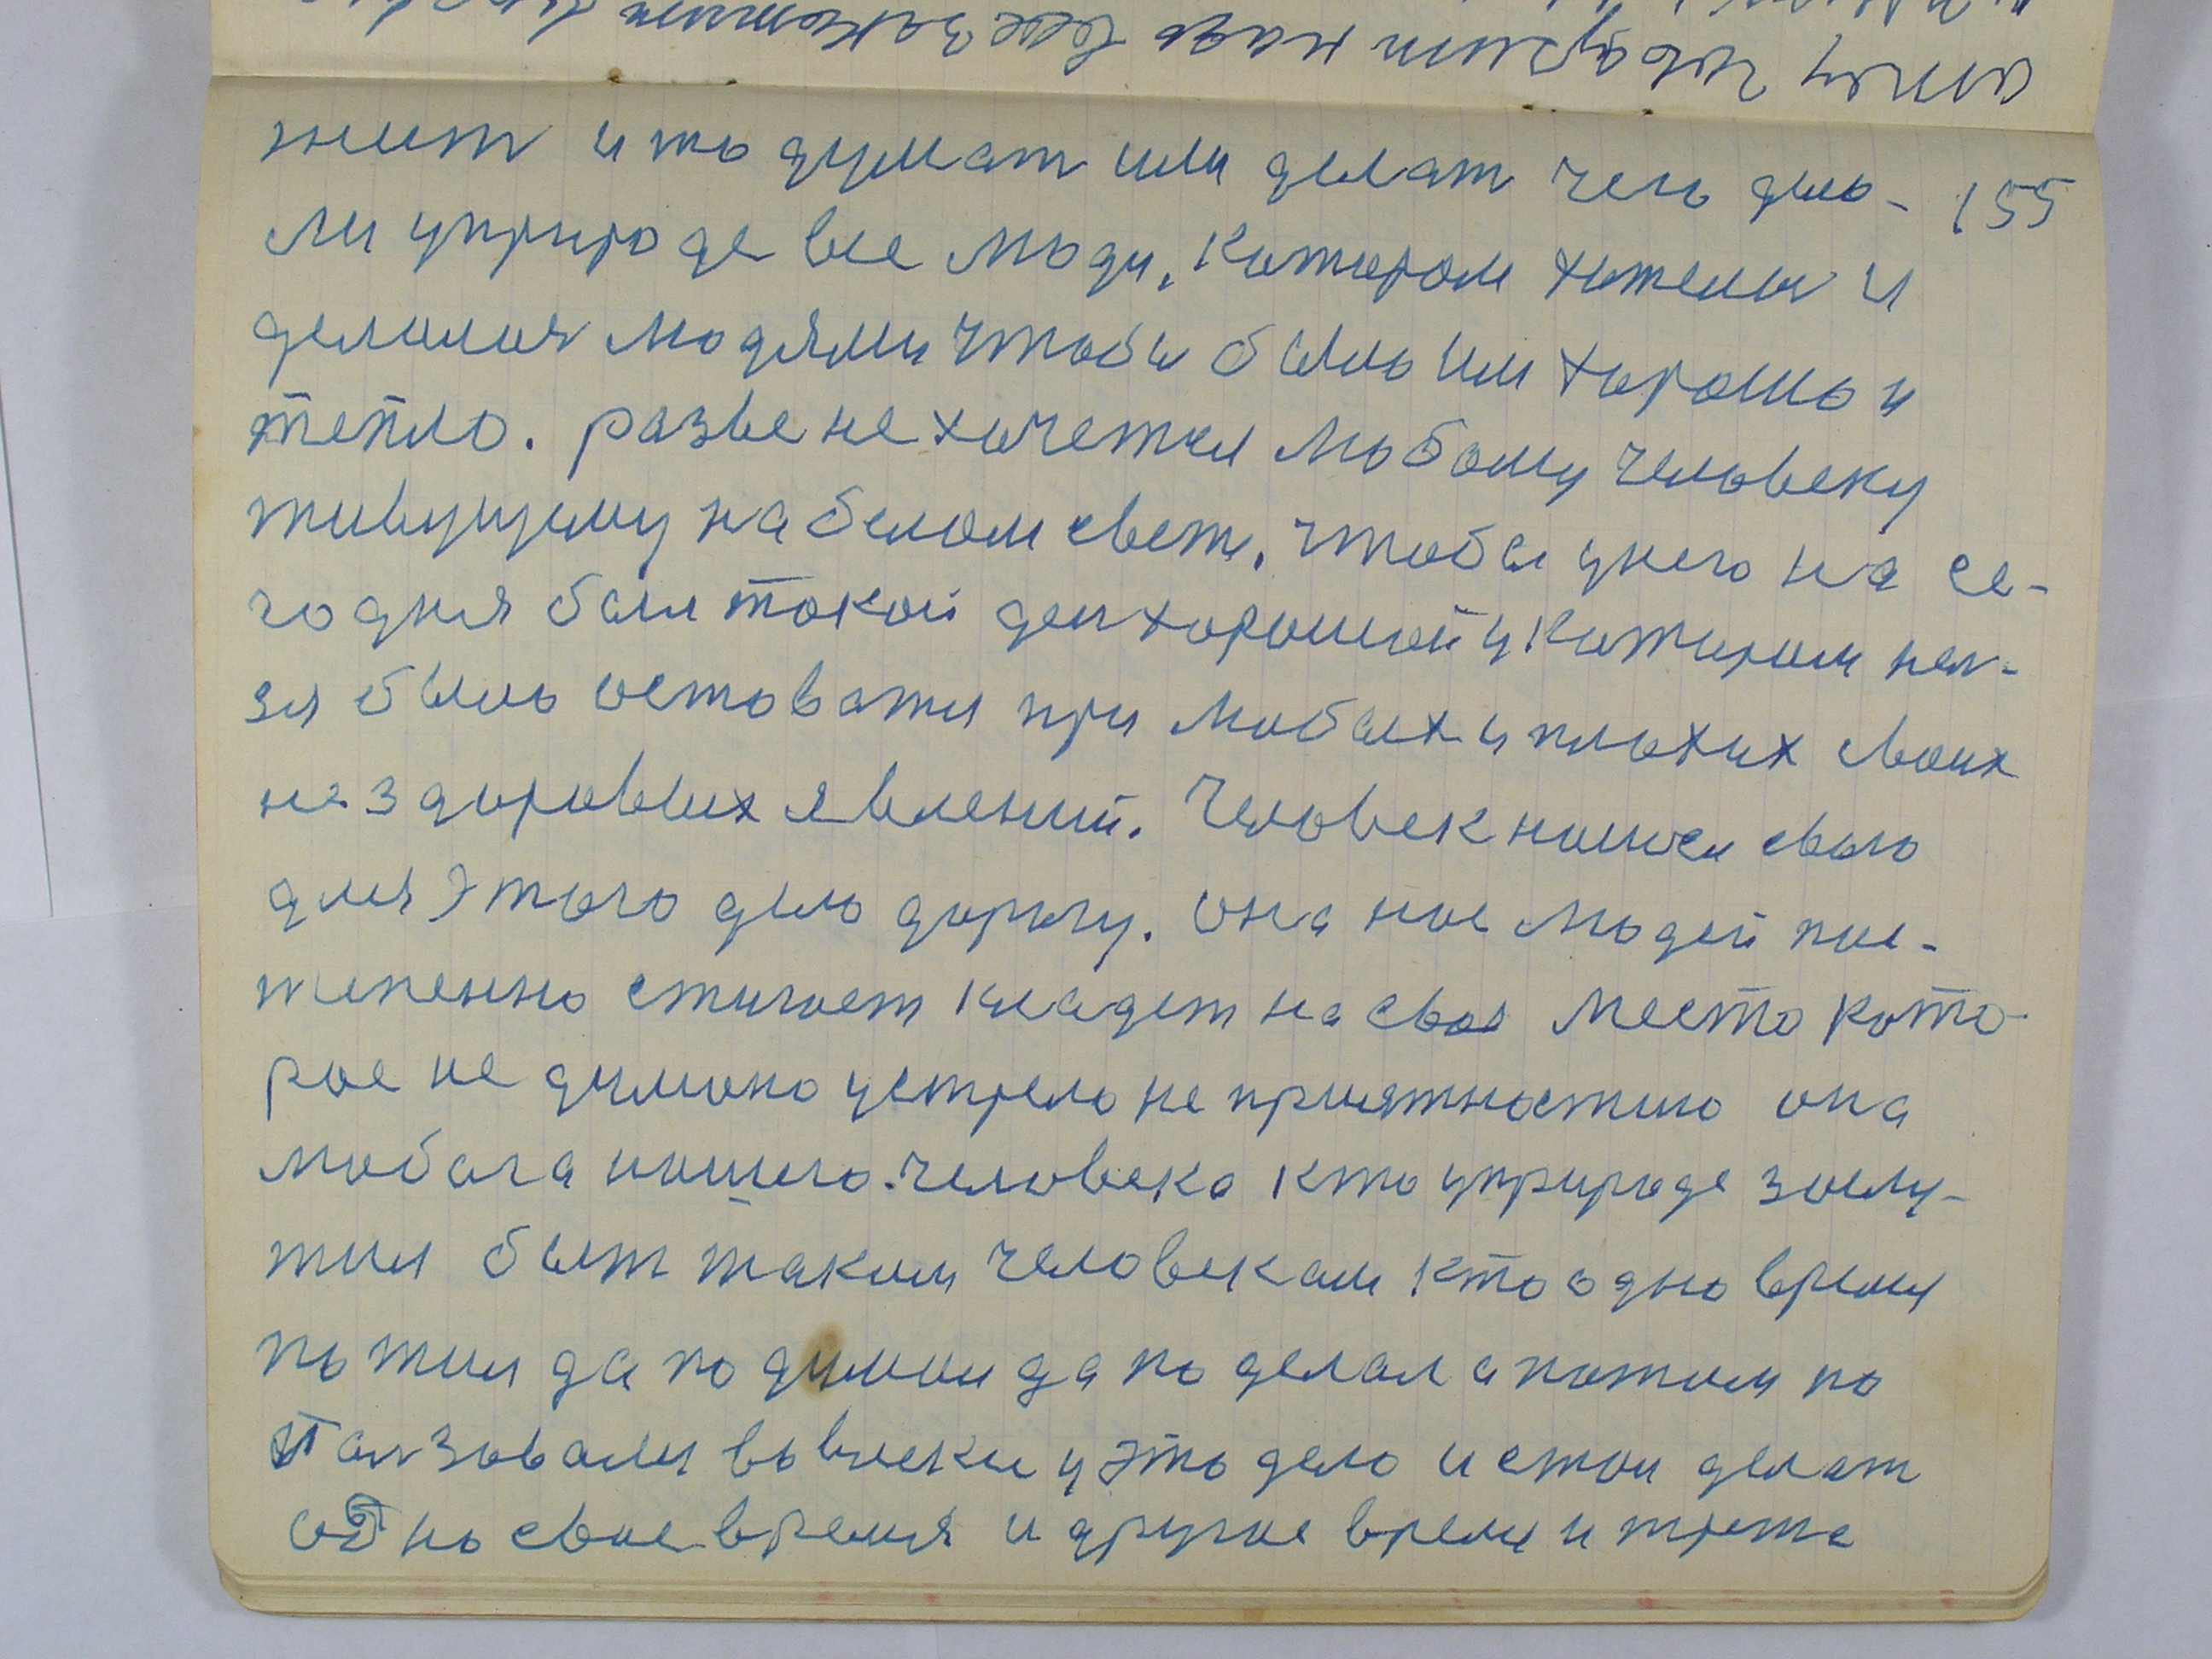 жит и то думат или делат чего дило- 155
ли у природе все люди, которым хотелос и
делилося людями чтобы было им хорошо и
тепло. разве не хочетця любому человеку
живущему на белом свети, чтобы у него на се-
годня был такой ден хороший у котором нел-
зя было оставатя при любых и плохих своих
нездоровых явлений. Человек нашол свою
для этого дело дорогу. она нас людей пос-
тепенно стигает кладет на свое место кото-
рое не думано устрело неприятностию она
любога нашего человека кто у природе заслу-
жил быт таким человеком кто одно время
по жил да по думал да по делал а потом по
ползовался во влеки у это дело и стал делат
одно свое время и другое время и трете